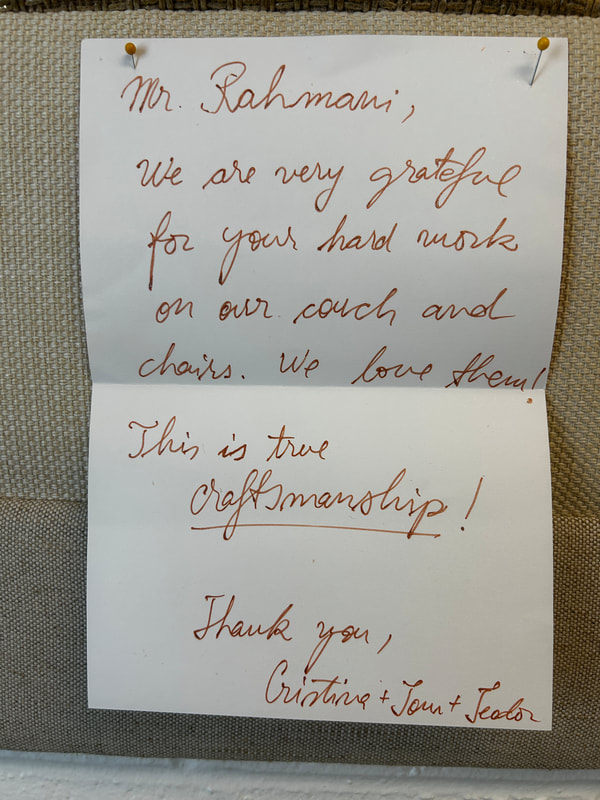 Mr. Rahmani,
We are very grateful
for your hard work
on our couch and
chairs. We love them!
This is true
craftsmanship!
Thank you,
Cristina + Tom + Teodor